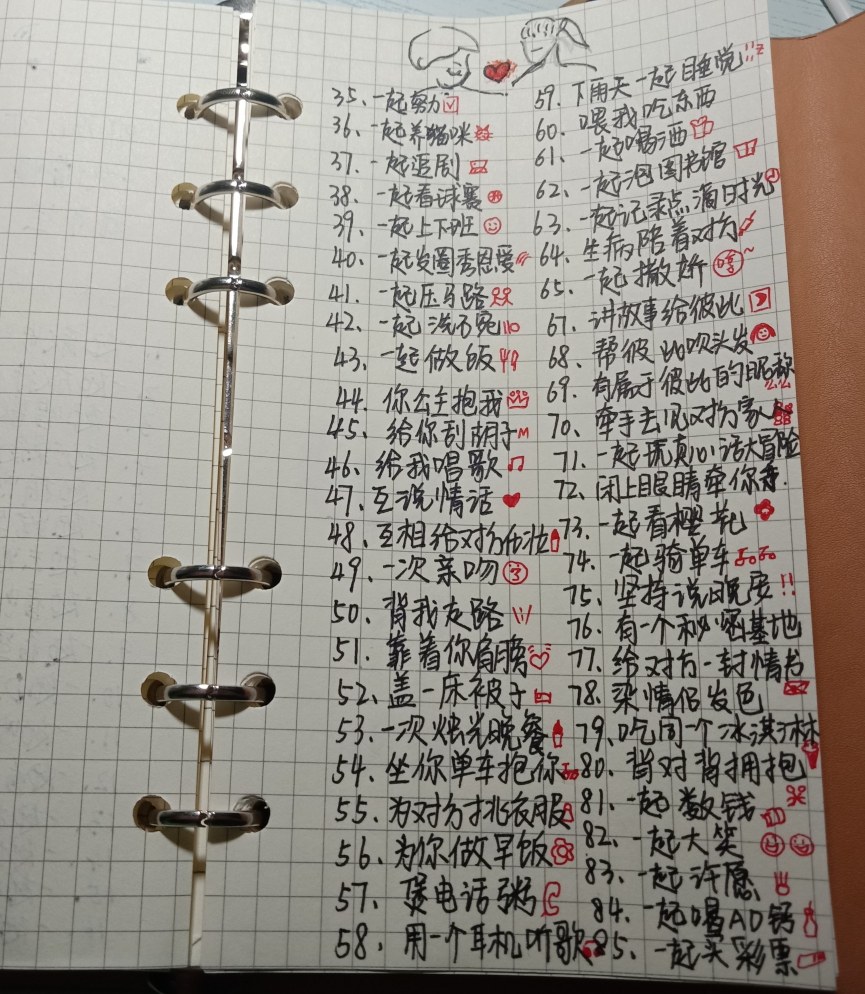 35、一起努力
36、一起养猫咪
37、一起追剧
38、一起看球赛
39、一起上下班
40、一起发圈秀恩爱
41、一起压马路
42、一起洗碗
43、一起做饭
44、你公主抱我
45、给你刮胡子
46、给我唱歌
47、互说情话
48、互相给对方化妆
49、一次亲吻
50、背我走路
51、靠着你肩膀
52、盖一床被子
53、一次烛光晚餐
54、坐你单车抱你
55、为对方挑衣服
56、为你做早饭
57、煲电话粥
58、用一个耳机听歌
59、下雨天一起睡觉
60、喂我吃东西
61、一起喝酒
62、一起泡图书馆
63、一起记录点滴时光
64、生病陪着对方
65、一起撒娇
67、讲故事给彼此
68、帮彼此吹头发
69、有属于彼此的昵称
70、牵手去见对方家人
71、一起玩真心话大冒险
72、闭上眼睛牵你手.
73、一起看樱花
74、一起骑单车
75、坚持说晚安
76、有一个秘密基地
77、给对方一封情书
78、染情侣发色
79、吃同一个冰淇淋
80、背对背拥抱
81、一起数钱
82、一起大笑
83、一起许愿
84、一起喝AD钙
85、一起买彩票